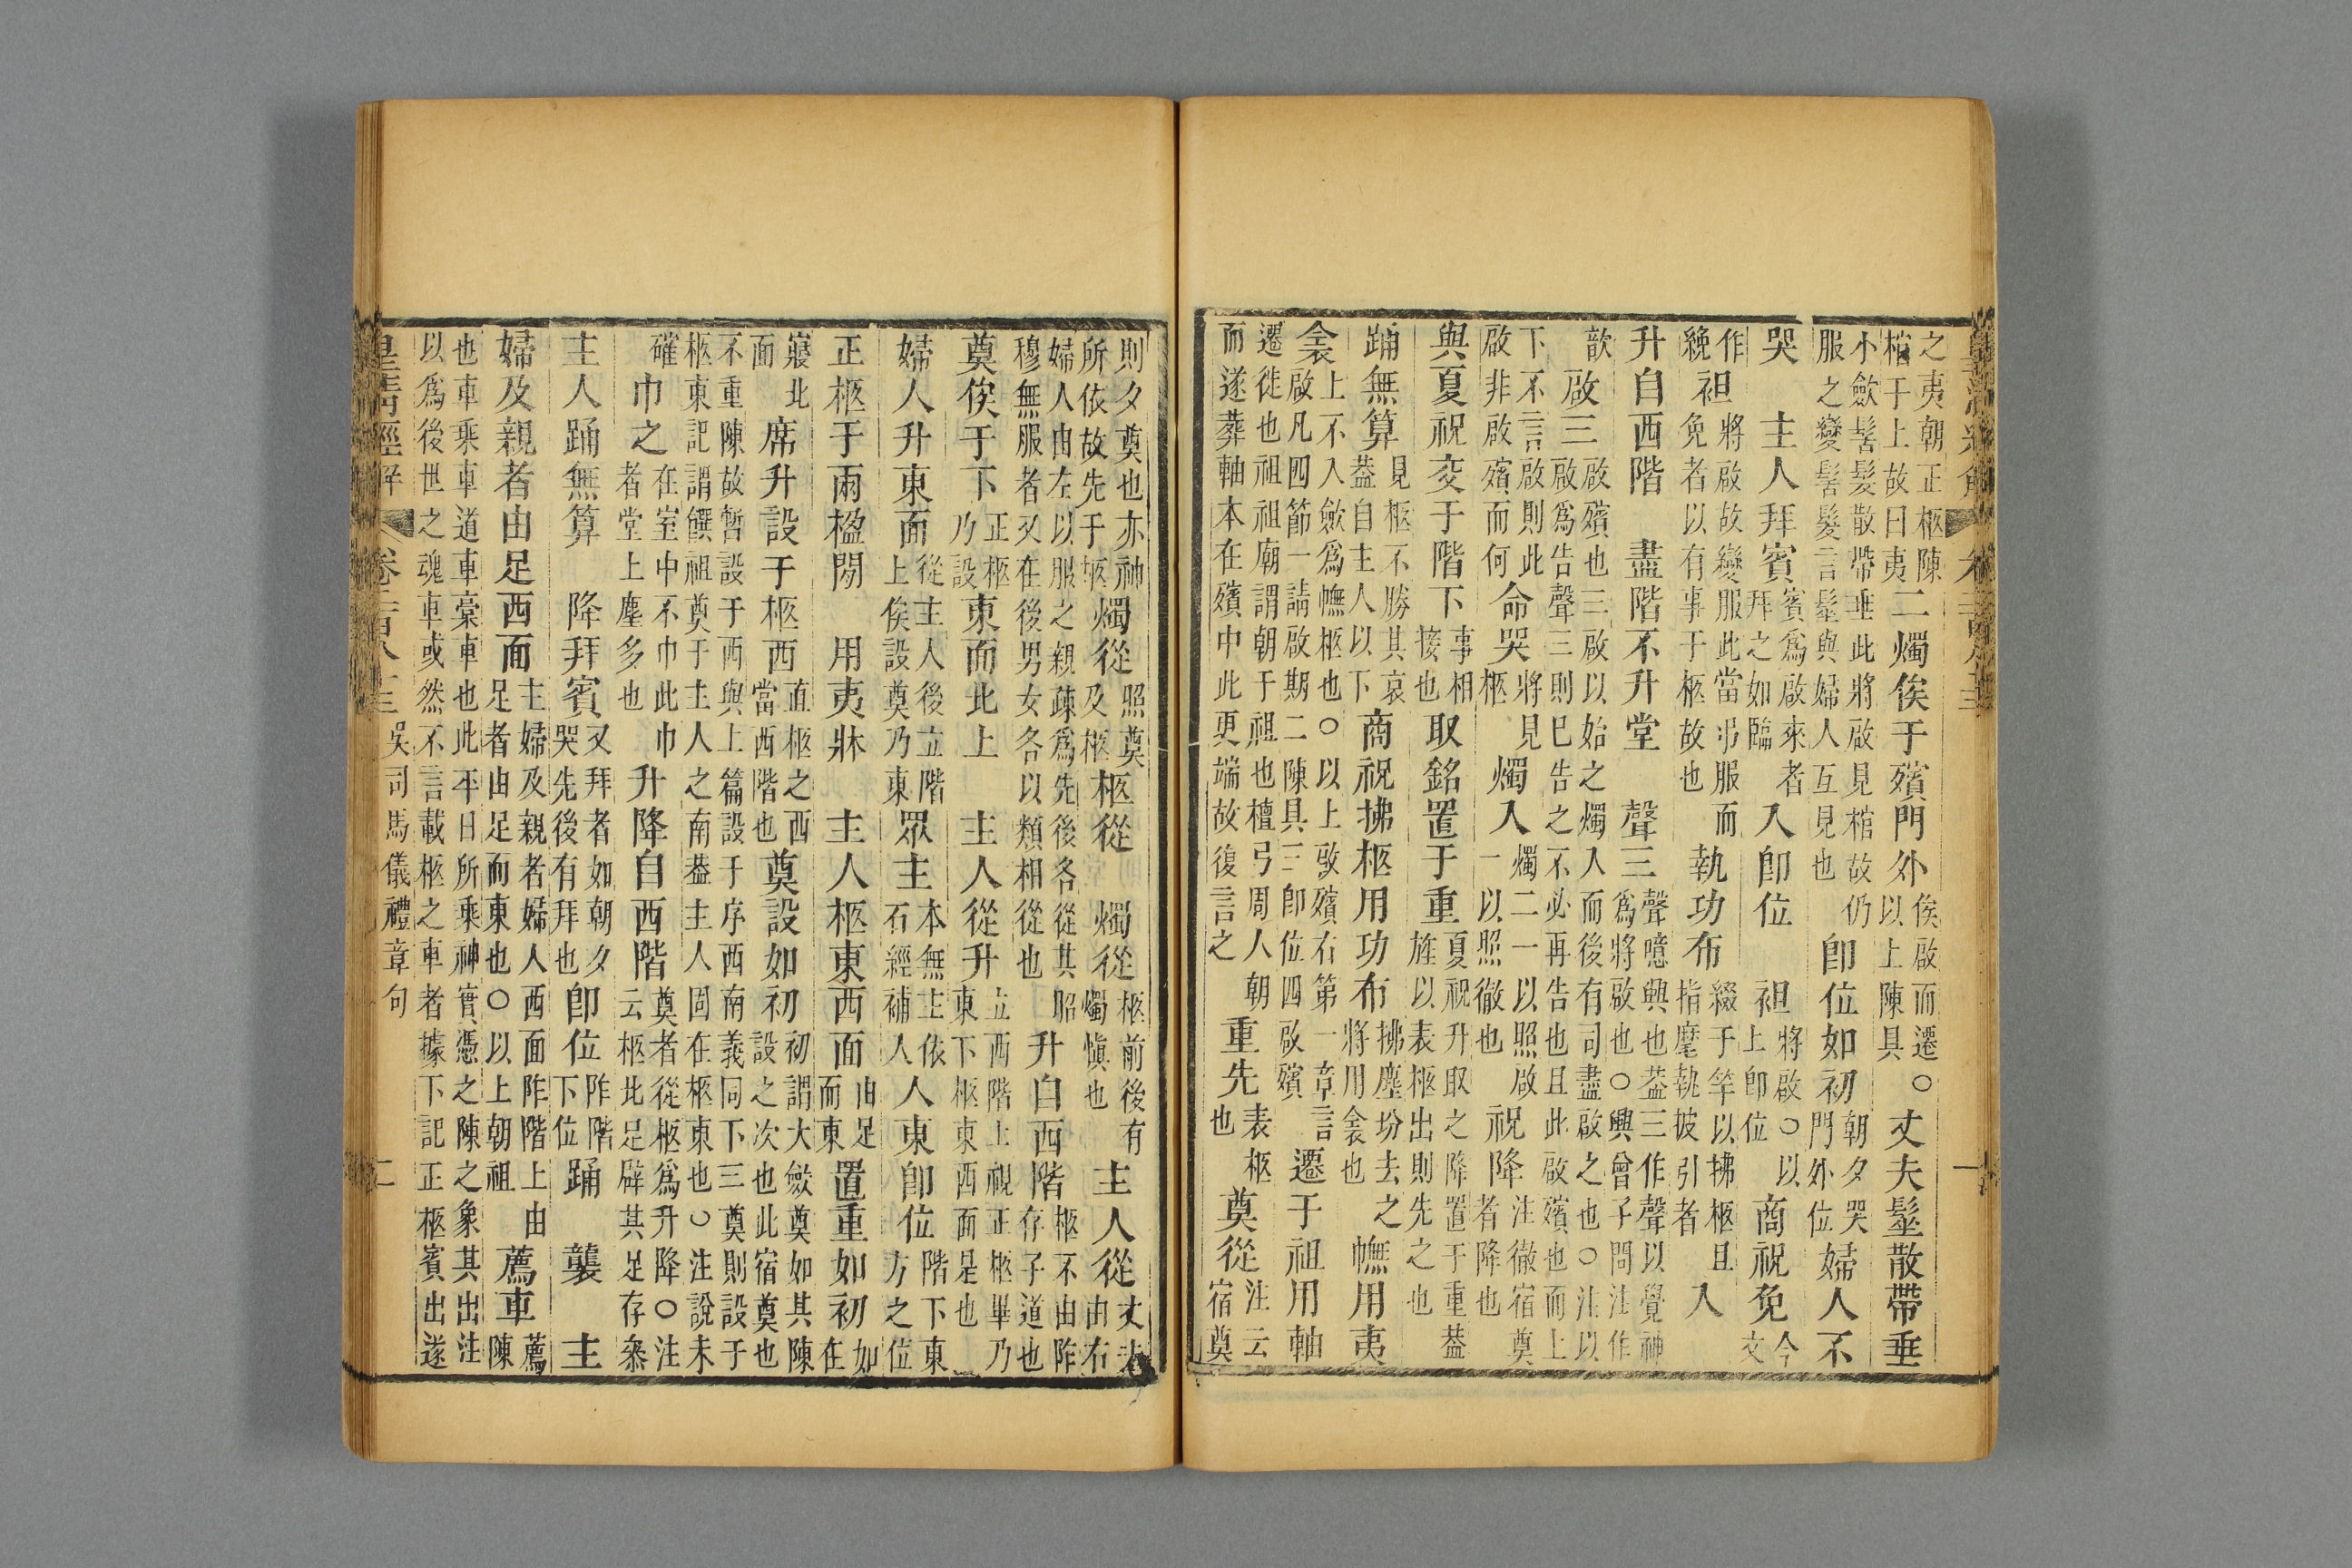 之夷朝正柩陳棺于上故曰夷二燭俟于殯門外俟啟而遷○以上陳具丈夫髽散帶垂
小斂髻髮散帶垂此將啟見棺故仍服之變髻髮言髽與婦人互見也卽位如初朝夕哭門外位婦人不
哭　主人拜賓賓爲啟來者拜之如臨入卽位　袒將啟○以上卽位商祝免今文
作絻袒將啟故變服此當弔服而免者以有事于柩故也執功布綴于竿以拂柩且指麾執披引者入
升自西階　盡階不升堂　聲三聲噫興也葢三作聲以覺神爲將啟也○興曾子問注作
歆啟三啟殯也三啟以始之燭入而後有司盡啟之也○注以啟爲告聲三則巳告之不必再告也且此啟殯也而上
下不言啟則此啟非啟殯而何命哭將見柩燭入燭二一以照啟一以照徹也祝降注徹宿奠者降也
與夏祝交于階下事相接也取銘置于重夏祝升取之降置于重葢旌以表柩出則先之也
踊無算見柩不勝其哀葢自主人以下商祝拂柩用功布拂塵坋去之將用衾也幠用夷
衾上不入斂爲幠柩也○以上啟殯右第一章言啟凡四節一請啟期二陳具三卽位四啟殯遷于祖用軸
遷徙也祖祖廟謂朝于祖也檀弓周人朝而遂葬軸本在殯中此更端故復言之重先表柩也奠從注云宿奠
則夕奠也亦神所依故先于柩燭從照奠及柩柩從　燭從柩前後有燭愼也主人從丈夫由右
婦人由左以服之親疎爲先後各從其昭穆無服者又在後男女各以類相從也升自西階柩不由阼存子道也
奠俟于下正柩乃設東面北上　主人從升立西階上視正柩畢乃東下柩東西面是也
婦人升東面從主人後立階上俟設奠乃東眾主本無主依石經補人人東卽位階下東方之位
正柩于兩楹閒　用夷牀　主人柩東西面由足而東置重如初如在
寢北面席升設于柩西直柩之西當西階也奠設如初初謂大斂奠如其陳設之次也此宿奠也
不重陳故暫設于西與上篇設于序西南義同下三奠則設于柩東記謂饌祖奠于主人之南葢主人固在柩東也○注說未
確巾之在室中不巾此巾者堂上塵多也升降自西階奠者從柩爲升降○注云柩北足辟其足存叅
主人踊無算　降拜賓又拜者如朝夕哭先後有拜也卽位阼階下位踊　襲　主
婦及親者由足西面主婦及親者婦人西面阼階上由足者由足而東也○以上朝祖薦車薦陳
也車乘車道車稾車也此平日所乘神實憑之陳之象其出注以爲後世之魂車或然不言載柩之車者據下記正柩賓出遂
吳司馬儀禮章句